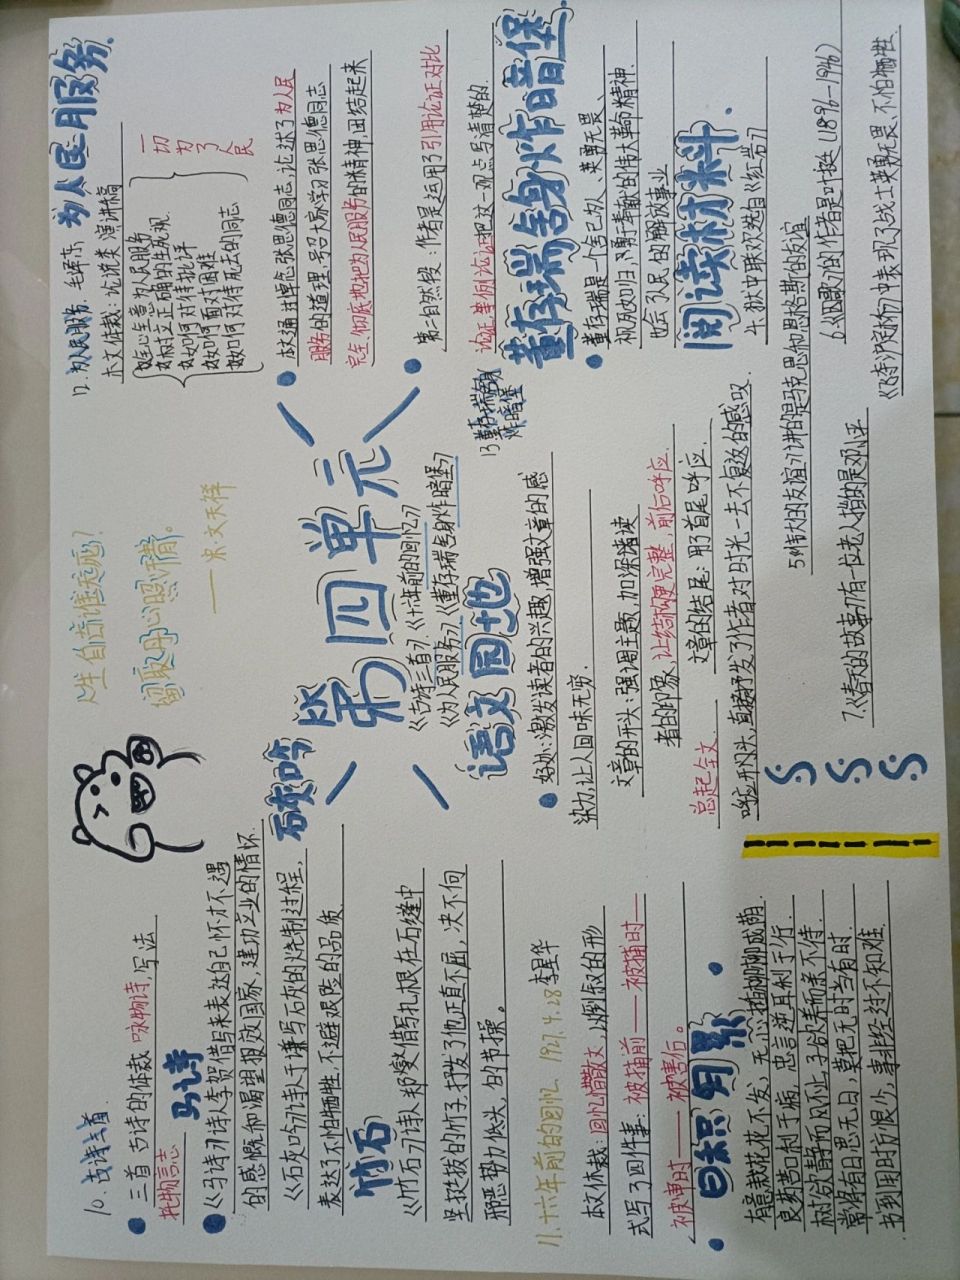 10. 古诗三首
三首古诗的体裁 咏物诗, 写法
托物言志
马诗
《马诗》诗人李贺借马来表达自己怀才不遇
的感慨和渴望报效国家,建功立业的情怀
石灰吟
《石灰吟》诗人于谦写石灰的烧制过程,
表达了不怕牺牲,不避艰险的品质
竹石
《竹石》诗人郑燮借写扎根在石缝中
坚挺拔的竹子,抒发了他正直不屈,决不向
邪恶势力低头,的节操。
11. 十六年前的回忆. 1927.4.28 李星华
本文体裁:回忆借散文,以倒叙的形
式写了四件事:被捕前——被捕时—
被审时——被害后。
日积月累
有意栽花花不发,无心插柳柳成荫.
良药苦口利于病,忠言逆耳利于行.
树欲静而风不止,子欲养而亲不待.
常将有日思无日,莫把无时当有时
书到用时方恨少,事非经过不知难.
人生自古谁无死?
留取丹心照汗青。
——宋·文天祥
第四单元
《古诗三首》《十六年前的回忆》
《为人民服务》《董存瑞舍身炸暗堡》
语文园地
好处:激发读者的兴趣,增强文章的感
染力,让人回味无穷.
文章的开头:强调主题,加深读
者的印象,让结构更完整,前后呼应.
总起全文. 文章的结尾:用了首尾呼应.
呼应开头,直接抒发了作者对时光一去不复返的感叹.
12. 为人民服务. 毛泽东 为人民服务.
本文体裁:议论类 演讲稿
全心全意为人民服务
树立正确的生死观
如何对待批评
如何面对困难
如何对待死去的同志
一切为了人民
本文通过悼念张思德同志论述了为人民
服务的道理,号召大家学习张思德同志
完全、彻底地把为人民服务的精神,团结起来
第三自然段:作者是运用了引用论证对比
论证举例论证把这一观点写清楚的.
13董存瑞舍身
炸暗堡
董存瑞舍身炸暗堡
董存瑞是一个舍己为、英勇无畏、
视死如归,勇于奉献的伟大革命精神.
也会了人民的解放事业
阅读材料.
4. 狱中联欢选自《红岩》
5.《伟大的友谊》讲的是马克思和恩格斯的友谊
6.《囚歌》的作者是叶挺(1896-1946)
7.《春天的故事》有一位老人指的是邓小平
《飞夺泸定桥》中表现了战士英勇无畏、不怕牺牲.